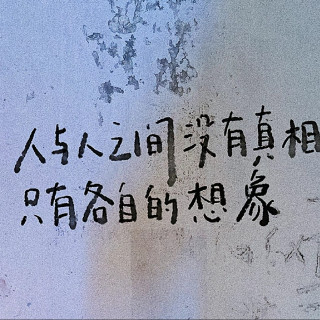 人与人之间没有真相
只有各自的想象